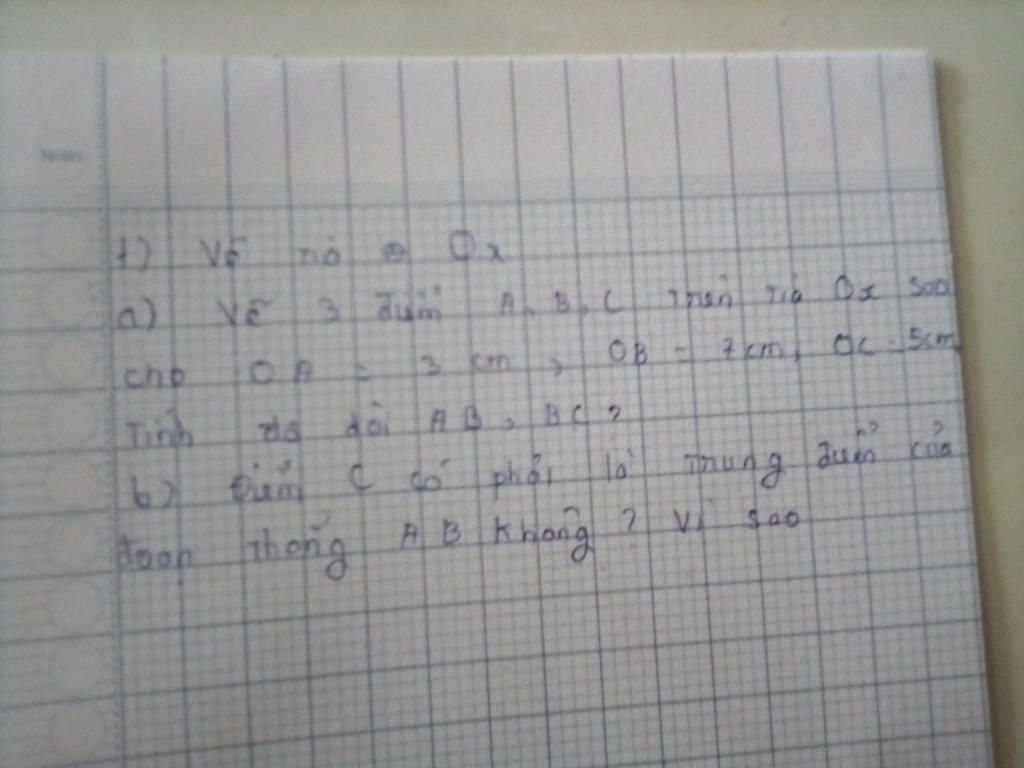 1) Vẽ tia Ox
a) Vẽ 3 điểm A, B, C trên tia Ox sao
cho OA = 3 cm, OB = 7 cm, OC = 5cm
Tính độ dài AB, BC?
b) Điểm C có phải là trung điểm của
đoạn thẳng AB không? Vì sao